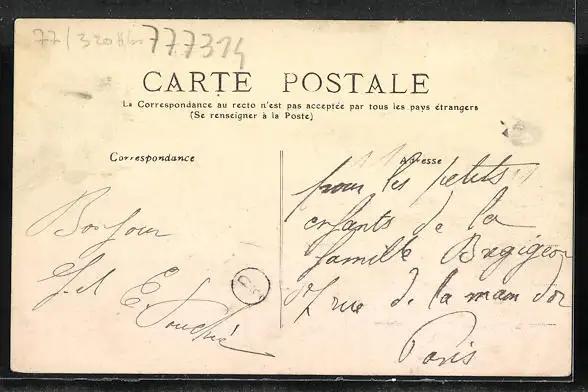 777314
CARTE POSTALE
La Correspondance au recto n'est pas acceptée par tous les pays étrangers
(Se renseigner à la Poste)
Correspondance
Adresse
Bonjour
pour les petits
enfants de la
famille
7 rue de la main d'or
Paris